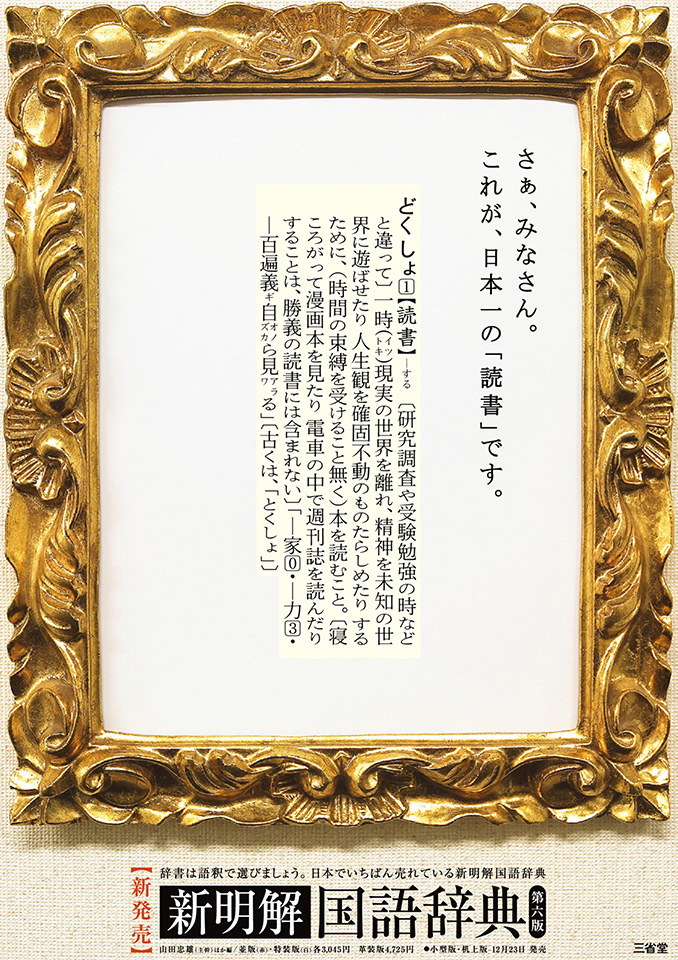 さぁ、みなさん。
これが、日本一の「読書」です。
どくしょ①【読書】―する 〔研究調査や受験勉強の時など
と違って〕一時(イットキ)現実の世界を離れ、精神を未知の世
界に遊ばせたり 人生観を確固不動のものたらしめたり する
ために、(時間の束縛を受けること無く)本を読むこと。〔寝
ころがって漫画本を見たり 電車の中で週刊誌を読んだり
することは、勝義の読書には含まれない〕「―家⓪・―力③・
―百遍義ギ自オノズカら見アラワる」〔古くは、「とくしょ」〕
辞書は語釈で選びましょう。日本でいちばん売れている新明解国語辞典
【新発売】
新明解国語辞典 第六版
山田忠雄(主幹)ほか編/並版(赤)・特装版(白)各3,045円 革装版4,725円 ●小型版・机上版-12月23日 発売
三省堂